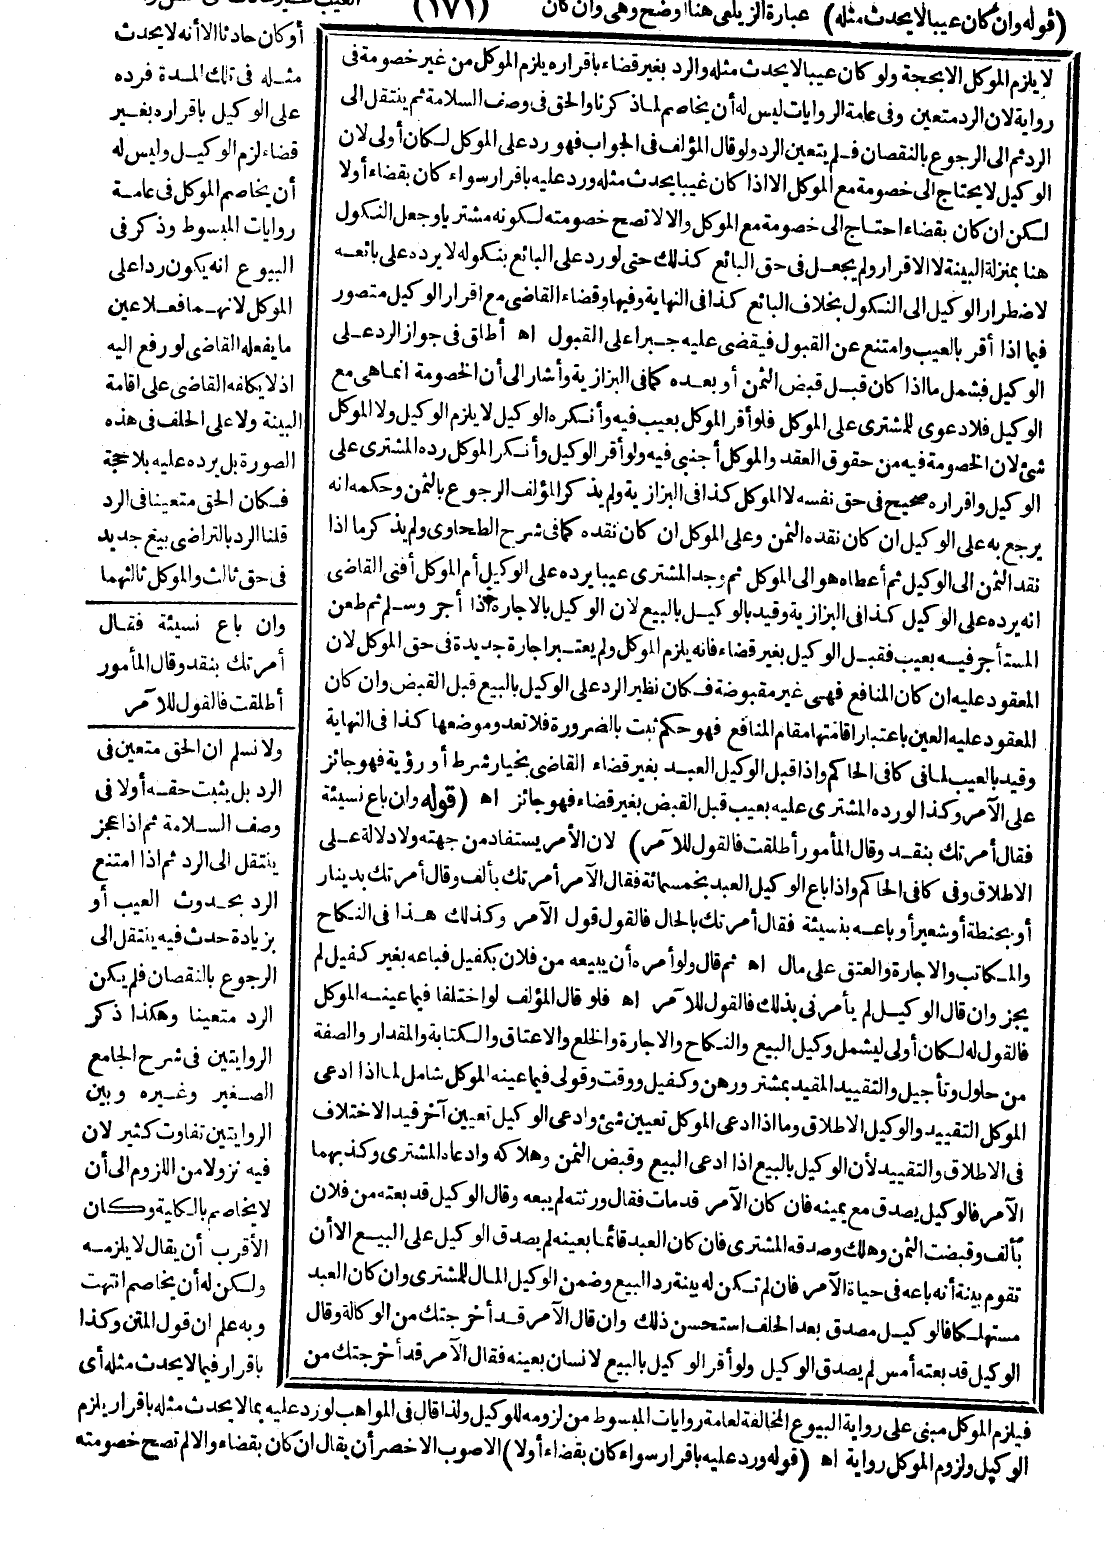 (قوله وان كان عيبا لا يحدث مثله) عبارة الزيلعى هنا أوضح وهى وان كان
(١٧١)
لا يلزم الموكل الا بحجة ولو كان عيبا لا يحدث مثله والرد بغير قضاء باقراره يلزم الموكل من غير خصومة فى
رواية لان الرد متعين وفى عامة الروايات ليس له أن يخاصم لما ذكرنا والحق فى وصف السلامة ثم ينتقل الى
الرد ثم الى الرجوع بالنقصان فلم يتعين الرد ولو قال المؤلف فى الجواب فهو رد على الموكل لكان أولى لان
الوكيل لا يحتاج الى خصومة مع الموكل الا اذا كان عيبا يحدث مثله ورد عليه باقرار سواء كان بقضاء أولا
لكن ان كان بقضاء احتاج الى خصومة مع الموكل والا لا تصح خصومته لكونه مشتريا وجعل النكول
هنا بمنزلة البينة لا الاقرار ولم يجعل فى حق البائع كذلك حتى لو رد على البائع بنكوله لا يرده على بائعه
لاضطرار الوكيل الى النكول بخلاف البائع كذا فى النهاية وفيها وقضاء القاضى مع اقرار الوكيل متصور
فيما اذا أقر بالعيب وامتنع عن القبول فيقضى عليه جبرا على القبول اه أطلق فى جواز الرد على
الوكيل فشمل ما اذا كان قبل قبض الثمن أو بعده كما فى البزازية وأشار الى أن الخصومة انما هى مع
الوكيل فلا دعوى للمشترى على الموكل فلو أقر الموكل بعيب فيه وأنكره الوكيل لا يلزم الوكيل ولا الموكل
شئ لان الخصومة فيه من حقوق العقد والموكل أجنبى فيه ولو أقر الوكيل وأنكر الموكل رده المشترى على
الوكيل واقراره صحيح فى حق نفسه لا الموكل كذا فى البزازية ولم يذكر المؤلف الرجوع بالثمن وحكمه انه
يرجع به على الوكيل ان كان نقده الثمن وعلى الموكل ان كان نقده كما فى شرح الطحاوى ولم يذكر ما اذا
نقد الثمن الى الوكيل ثم أعطاه هو الى الموكل ثم وجد المشترى عيبا يرده على الوكيل أم الموكل أفتى القاضى
انه يرده على الوكيل كذا فى البزازية وقيد بالوكيل بالبيع لان الوكيل بالاجارة اذا أجر وسلم ثم طعن
المستأجر فيه بعيب فقبل الوكيل بغير قضاء فانه يلزم الموكل ولم يعتبر اجارة جديدة فى حق الموكل لان
المعقود عليه ان كان المنافع فهى غير مقبوضة فكان نظير الرد على الوكيل بالبيع قبل القبض وان كان
المعقود عليه العين باعتبار اقامتها مقام المنافع فهو حكم ثبت بالضرورة فلا تعدو موضعها كذا فى النهاية
وقيد بالعيب لما فى كافى الحاكم واذا قبل الوكيل العبد بغير قضاء القاضى بخيار شرط أو رؤية فهو جائز
على الآمر وكذا لو رده المشترى عليه بعيب قبل القبض بغير قضاء فهو جائز اه (قوله وان باع نسيئة
فقال أمرتك بنقد وقال المأمور أطلقت فالقول للآمر) لان الأمر يستفاد من جهته ولا دلالة على
الاطلاق وفى كافى الحاكم واذا باع الوكيل العبد بخمسمائة فقال الآمر أمرتك بألف وقال أمرتك بدينار
أو بحنطة أو شعير أو باعه بنسيئة فقال أمرتك بالحال فالقول قول الآمر وكذلك هذا فى النكاح
والمكاتب والاجارة والعتق على مال اه ثم قال ولو أمره أن يبيعه من فلان بكفيل فباعه بغير كفيل لم
يجز وان قال الوكيل لم يأمرنى بذلك فالقول للآمر اه فلو قال المؤلف لو اختلفا فيما عينه الموكل
فالقول له لكان أولى ليشمل وكيل البيع والنكاح والاجارة والخلع والاعتاق والكتابة والمقدار والصفة
من حلول وتأجيل والتقييد المقيد بمشتر ورهن وكفيل ووقت وقولى فيما عينه الموكل شامل لما اذا ادعى
الموكل التقييد والوكيل الاطلاق وما اذا ادعى الموكل تعيين شئ وادعى الوكيل تعيين آخر قيد الاختلاف
فى الاطلاق والتقييد لأن الوكيل بالبيع اذا ادعى البيع وقبض الثمن وهلاكه وادعاه المشترى وكذبهما
الآمر فالوكيل يصدق مع يمينه فان كان الآمر قد مات فقال ورثته لم يبعه وقال الوكيل قد بعته من فلان
بألف وقبضت الثمن وهلك وصدقه المشترى فان كان العبد قائما بعينه لم يصدق الوكيل على البيع الا أن
تقوم بينة أنه باعه فى حياة الآمر فان لم تكن له بينة رد البيع وضمن الوكيل المال للمشترى وان كان العبد
مستهلكا فالوكيل مصدق بعد الحلف استحسن ذلك وان قال الآمر قد أخرجتك من الوكالة وقال
الوكيل قد بعته أمس لم يصدق الوكيل ولو أقر الوكيل بالبيع لانسان بعينه فقال الآمر قد أخرجتك من
أو كان حادثا الا أنه لا يحدث
مثله فى تلك المدة فرده
على الوكيل باقراره بغير
قضاء لزم الوكيل وليس له
أن يخاصم الموكل فى عامة
روايات المبسوط وذكر فى
البيوع انه يكون ردا على
الموكل لانهما فعلا عين
ما يفعله القاضى لو رفع اليه
اذ لا يكلفه القاضى على اقامة
البينة ولا على الحلف فى هذه
الصورة بل يرده عليه بلا حجة
فكان الحق متعينا فى الرد
قلنا الرد بالتراضى بيع جديد
فى حق ثالث والموكل ثالثهما
وان باع نسيئة فقال
أمرتك بنقد وقال المأمور
أطلقت فالقول للآمر
ولا نسلم ان الحق متعين فى
الرد بل يثبت حقه أولا فى
وصف السلامة ثم اذا عجز
ينتقل الى الرد ثم اذا امتنع
الرد بحدوث العيب أو
بزيادة حدث فيه ينتقل الى
الرجوع بالنقصان فلم يكن
الرد متعينا وهكذا ذكر
الروايتين فى شرح الجامع
الصغير وغيره وبين
الروايتين تفاوت كثير لان
فيه نزولا من اللزوم الى أن
لا يخاصم بالكلية وكان
الأقرب أن يقال لا يلزمه
ولكن له أن يخاصم انتهت
وبه علم ان قول المتن وكذا
باقرار فيما لا يحدث مثله أى
فيلزم الموكل مبنى على رواية البيوع المخالفة لعامة روايات المبسوط من لزومه للوكيل ولذا قال فى المواهب لو رد عليه بما لا يحدث مثله باقرار يلزم
الوكيل ولزوم الموكل رواية اه (قوله ورد عليه باقرار سواء كان بقضاء أولا) الاصوب الاخصر أن يقال ان كان بقضاء والا لم تصح خصومته